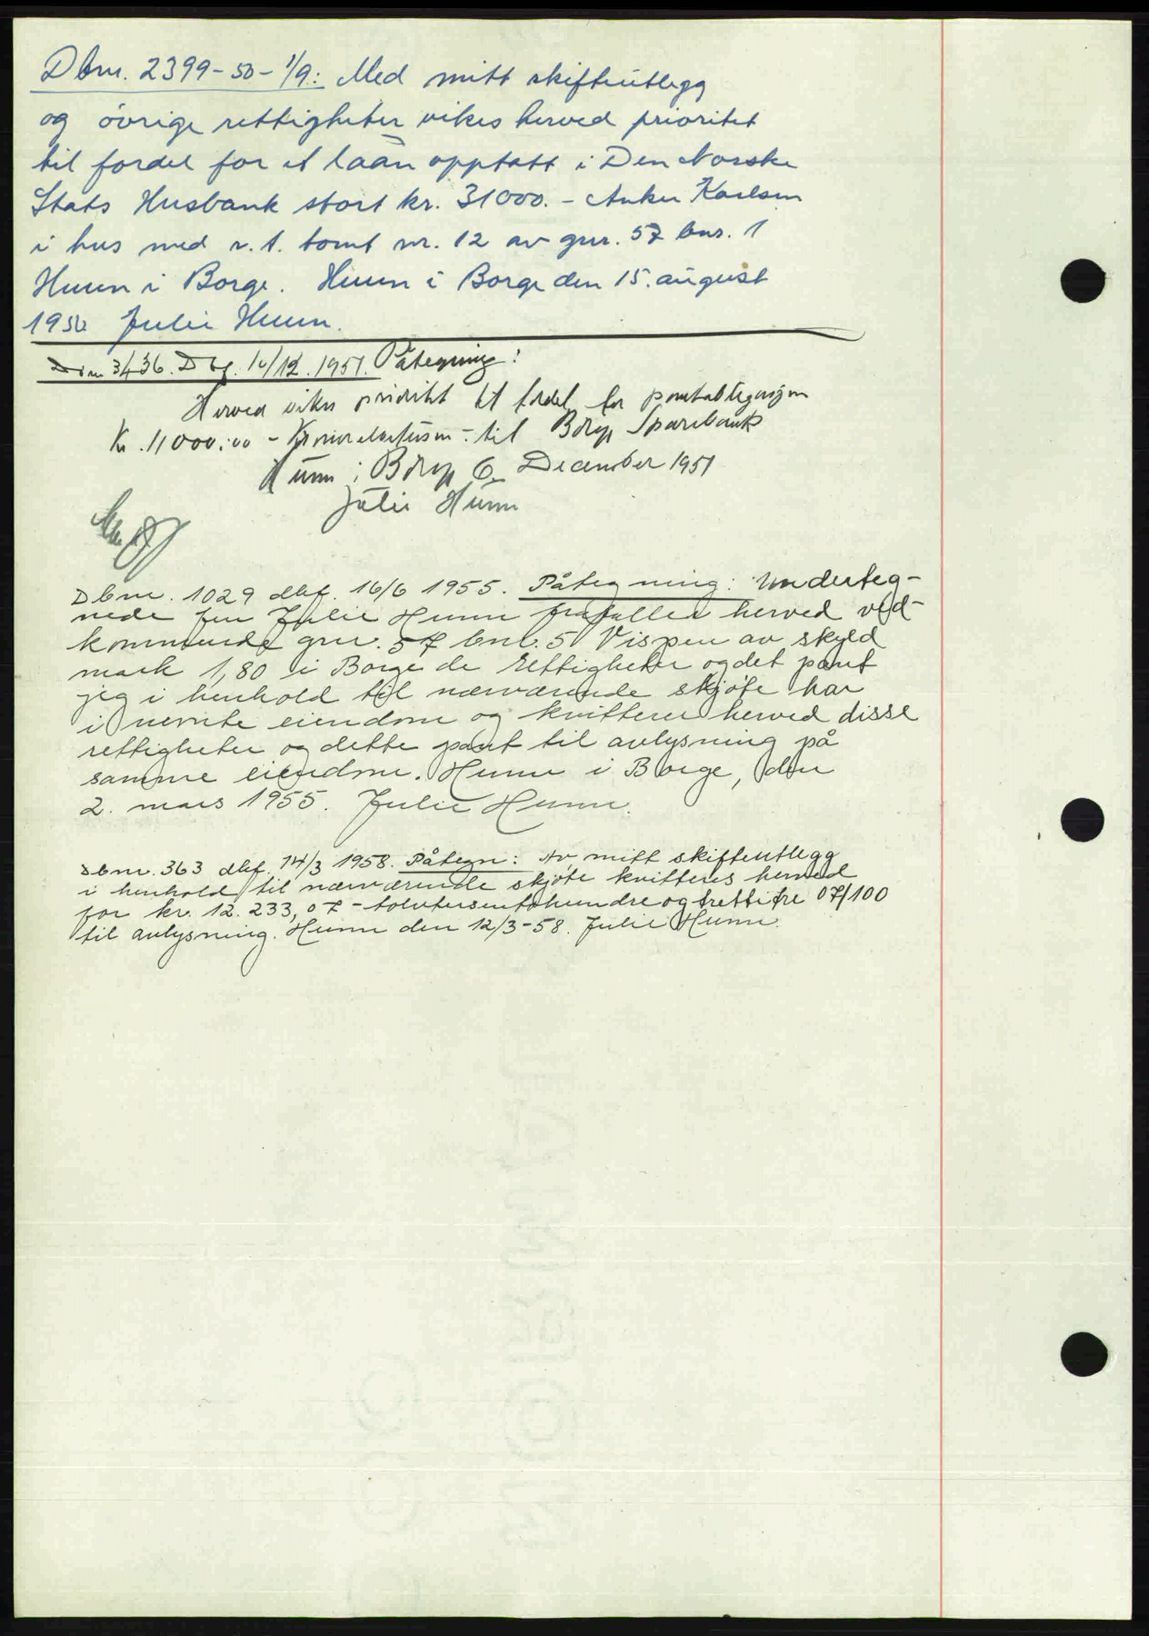 Dbnr. 2399-50-1/9: Med mitt skifteutlegg
og övrige rettigheter vikes herved prioritet
til fordel for et laan opptatt i Den Norske
Stats Husbank stort kr. 31000.- Anker Karlsen
i hus med r. t. tomt nr. 12 av gnr. 57 bnr. 1
Hunn i Borge. Hunn i Borge den 15. august
1950 Julie Hunn.
Dbnr 3436. Dbf. 10/12. 1951. Påtegning:
Herved vikes prioritet til fordel for pantobligasjon
Kr. 11000.00 - Kroner elvetusen - til Borge Sparebank
Hunn i Borge 6 December 1951
Julie Hunn
Dbnr. 1029 dbf. 16/6 1955. Påtegning: Underteg-
nede fru Julie Hunn frafaller herved ved-
kommende gnr. 57 bnr. 5 Vispen av skyld
mark 1,80 i Borge de rettigheter og det pant
jeg i henhold til nærværende skjøte har
i nevnte eiendom og kvitterer herved disse
rettigheter og dette pant til avlysning på
samme eiendom. Hunn i Borge, den
2. mars 1955. Julie Hunn.
Dbnr. 363 dbf. 14/3 1958. Påtegn: Av mitt skifteutlegg
i henhold til nærværende skjøte kvitteres herved
for kr. 12.233,07 - tolvtusentohundreogtrettitre 07/100
til avlysning. Hunn den 12/3-58. Julie Hunn.